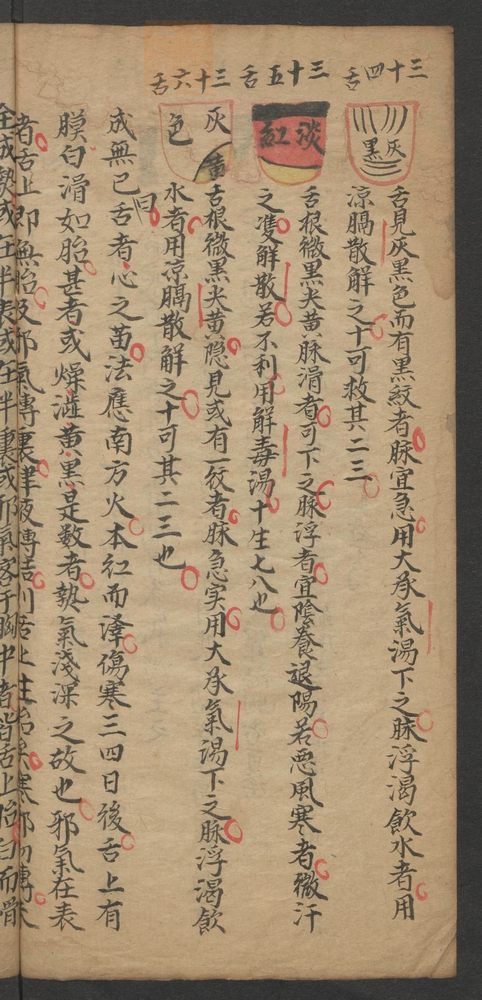 三十四舌
灰黑
舌見灰黑色而有黑紋者脉宜急用大承氣湯下之脉浮渴飲水者用
涼膈散解之十可救其二三
三十五舌
淡紅
舌根微黑尖黄脉滑者可下之脉浮者宜陰養退陽若惡風寒者微汗
之雙解散若不利用解毒湯十生七八也
三十六舌
灰色
黄
舌根微黑尖黄隐見或有一紋者脉急实用大承氣湯下之脉浮渴飲
水者用凉膈散解之十可其二三也
成無已曰舌者心之苗法應南方火本红而澤傷寒三四日後舌上有
膜白滑如胎甚者或燥澁黄黑是数者熱氣淺深之故也邪氣在表
者舌上即無胎及邪氣傳裏津液